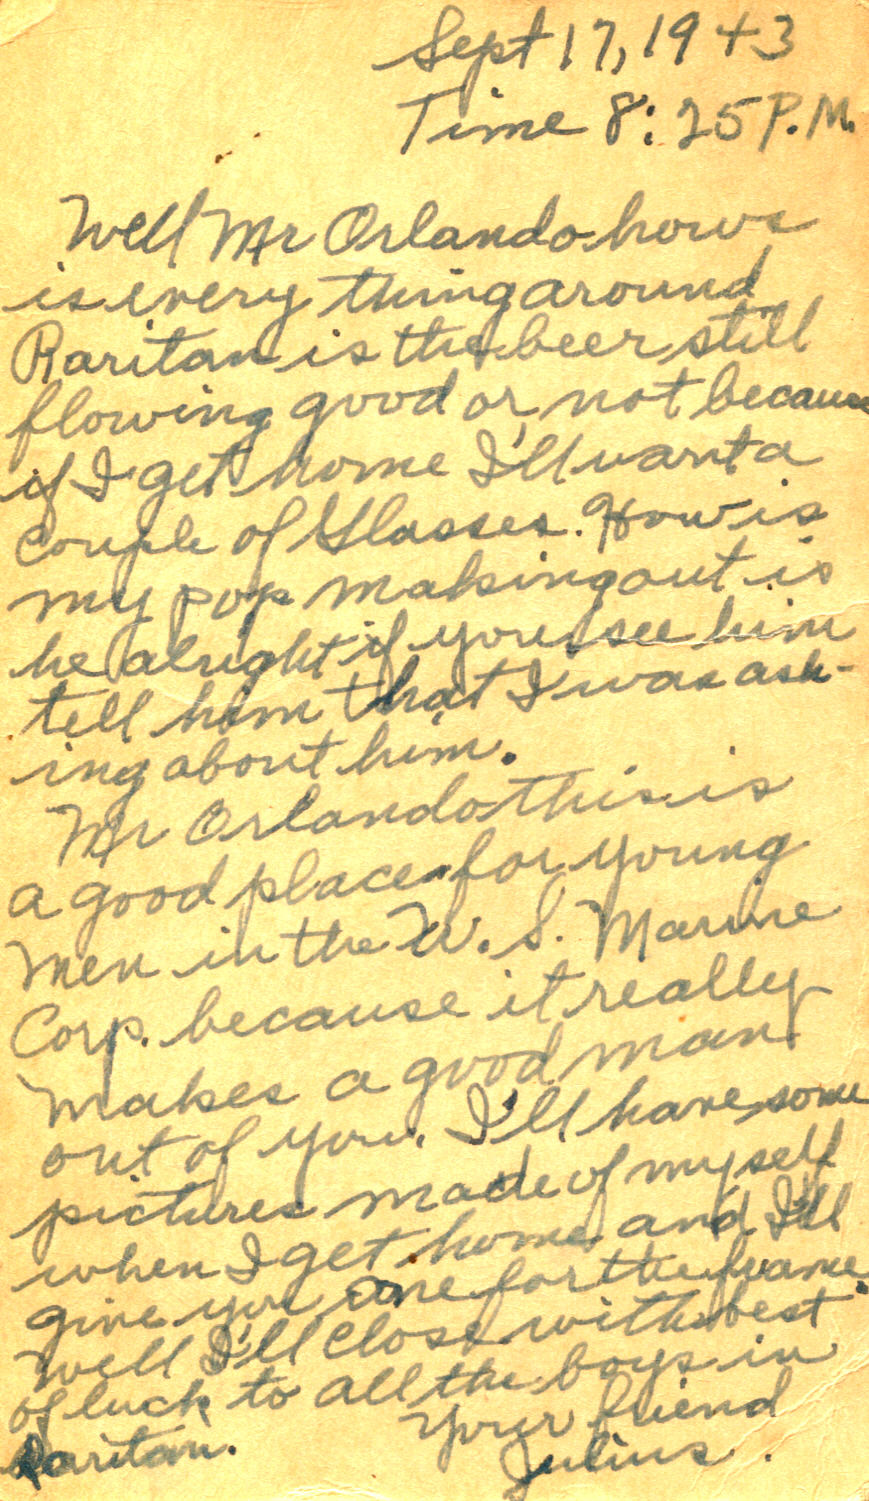 Sept 17, 1943
Time 8:25 P.M.
Well Mr Orlando hows
is every thing around
Raritan is the beer still
flowing good or not because
if I get home I'll want a
couple of Glasses. How is
my pop making out is
he alright if you see him
tell him that I was ask-
ing about him.
Mr Orlando this is
a good place for young
men in the U.S. Marine
Corp. because it really
makes a good man
out of you. I'll have some
pictures made of myself
when I get home and I'll
give you one for the frame.
Well I'll close with best
of luck to all the boys in
Raritan. Your friend
Julius.